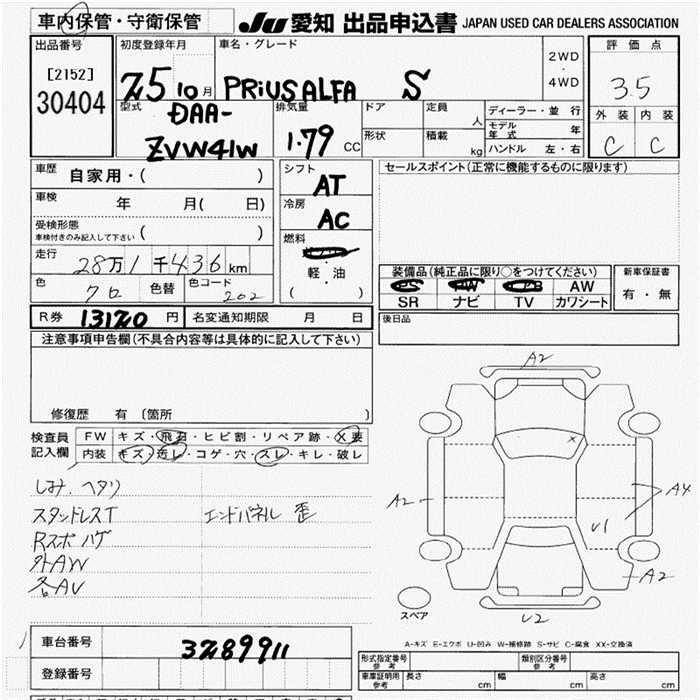 車内保管・守衛保管 JU 愛知 出品申込書 JAPAN USED CAR DEALERS ASSOCIATION
出品番号 初度登録年月 車名・グレード 2WD・4WD 評価点
[2152] 30404
25 10月 PRiUS ALFA S 3.5
型式 DAA-ZVW41W 排気量 1.79 CC ドア 定員 人 ディーラー・並行 外装 内装
形状 積載 kg モデル年式 年 C C
ハンドル 左・右
車歴 自家用・( ) シフト AT セールスポイント(正常に機能するものに限ります)
車検 年 月( 日) 冷房 AC
受検形態
車検付きのみ記入して下さい ( )
燃料
軽・油
( )
走行 28万1千436km
色 クロ 色替 色コード 202
装備品(純正品に限り○をつけてください) 新車保証書
PS PW AW 有・無
SR ナビ TV カワシート
R券 13120円 名変通知期限 月 日 後日品
注意事項申告欄(不具合内容等は具体的に記入して下さい)
修復歴 有 〔箇所 〕
検査員記入欄 FW キズ・飛石・ヒビ割・リペア跡・X要
内装 キズ・汚レ・コゲ・穴・スレ・キレ・破レ
しみ、ヘタリ
スタッドレスT エンドパネル 歪
Rスポ ハゲ
外AW
各AU
A2
A2
A4
U1
A2
U2
X
スペア
A-キズ E-エクボ U-凹み W-補修跡 S-サビ C-腐食 XX-交換済
車台番号 3289911
登録番号
形式指定番号 参考 類別区分番号 参考
車庫証明用 参考 長さ cm 幅 cm 高さ cm